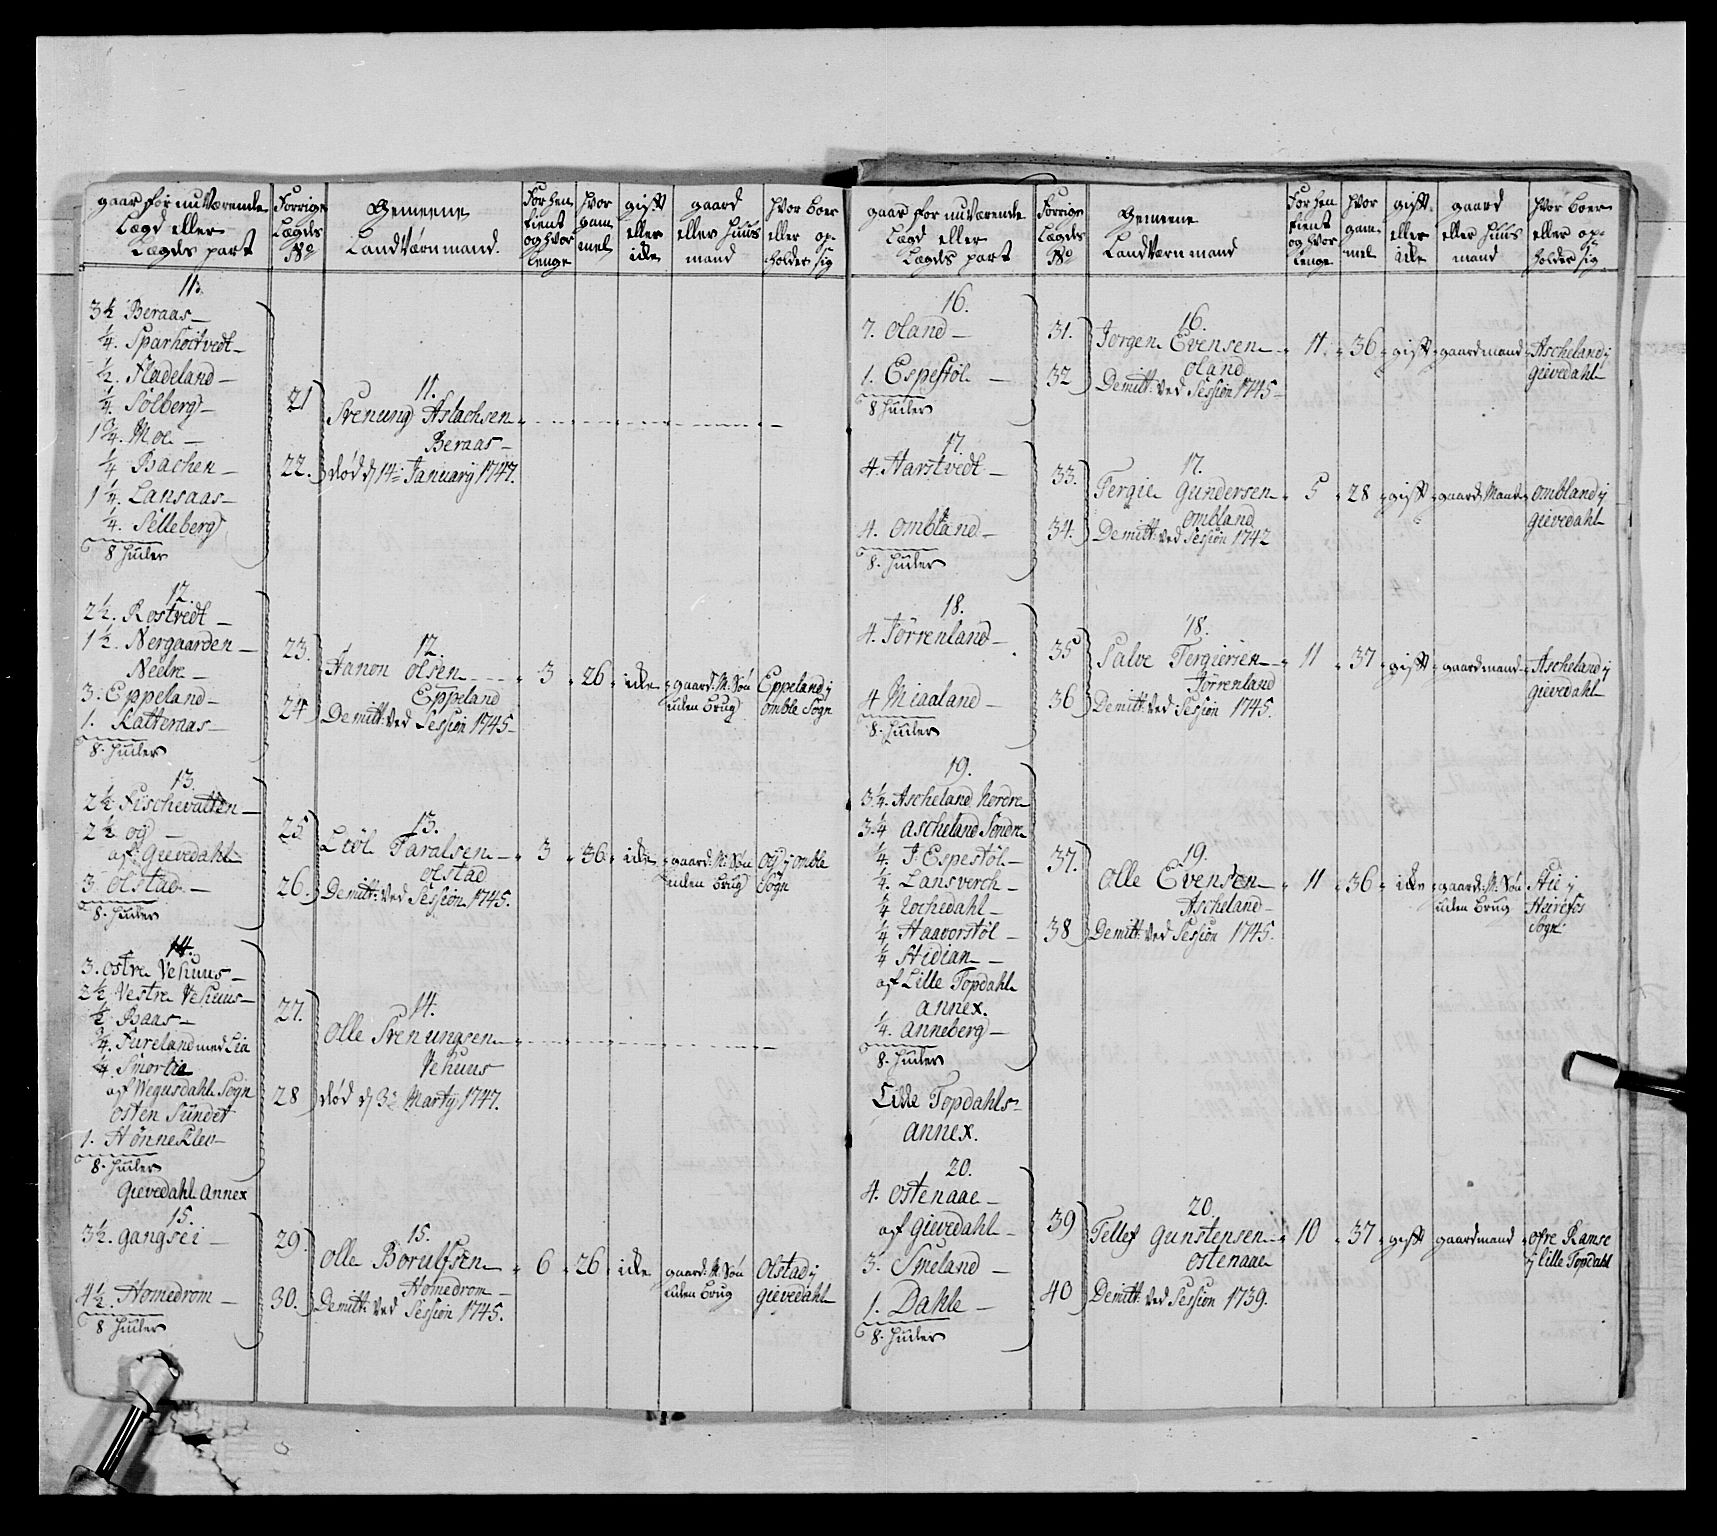 gaar for nu værende
Lægd eller
Lægds part
Forrige
Lægds
No
Gemeene
Landværn mand.
For hen
tient
og hvor
lenge
Hvor
gam
mel
gift
eller
ikke
gaard
eller Huus
mand
Hvor boer
eller op-
holder sig
11.
3½ Beraas
¼. Sparhoitvedt
½. Fladeland
¼. Solberg
1¾. Moe
¼ Bachen
1¼. Lansaas
¼. Selleberg
8 Huder
21
22.
11.
Svenung Aslachsen
Beraas
død d 14: January 1747.
12.
2½. Rostvedt
1½. Nergaarden
Nedre
3. Eppeland
1. Katteraas
8. Huder
23.
24
12.
Aanon Olsen
Eppeland
Demitt: ved Session 1745
3
26
ikke
gaard: M. Søn
uden Brug
Eppeland j
omble Sogn
13.
2½ Fischevatten
2½ og
af Gievedahl
3. olstad
8. Huder
25
26.
13.
Leol Taralsen
olstad
Demitt: ved Session 1745.
3
36
ikke
gaard: M. Søn
uden Brug
og j omble
Sogn
14.
3. ostre Vehuus
2½ Vestre Vehuus
½ Baas
¾. Fureland med Lia
¼. Smorlie
af Wegusdahl Sogn
osten Sundet
1. Hønneklev
8. Huder
27.
28
14.
Olle Svenungsen
Vehuus
død d 3: Marty 1747.
Gievedahl Annex
15.
3½. gangsei
4½. Homedrom
8 Huder
29.
30.
15.
Olle Borulfsen
Homedrom
Demitt: ved Session 1745.
6
26
ikke
gaard: M. Søn
uden Brug
Olstad j
gievedahl
gaar for nu værende
Lægd eller
Lægds part
Forrige
Lægds
No
Gemeene
Landværn mand
For hen
tient
og hvor
lenge
Hvor
gam-
mel
gift
eller
ikke
gaard
eller Huus
mand
Hvor boer
eller op-
holder sig
16.
7. oland
1. Espestøl
8 Huder
31.
32
16.
Jorgen Evensen
oland
Demitt: ved Session 1745
11.
36
gift
gaardmand
Ascheland j
gievedahl
17.
4. Harstvedt
4. ombland
8. Huder
33.
34.
17.
Tergie Gundersen
ombland
Demitt: ved Session 1742
5
28
gift
gaard: Mand
ombland j
gievedahl
18.
4. Tørrenland
4 Migaland
8. Huder
35
36
18.
Salve Tergiersen
Tørrenland
Demitt: ved Session 1745.
11
37
gift
gaardmand
Ascheland j
gievedahl
19.
3¼. Ascheland Nordre
3¼ ascheland Søndre
¼. J: Espestøl
¼. Lansverch
¼ Uochedahl
¼ Haavorstøl
¼ Stidian
af Lille Topdahl
annex.
¼. anneberg
8. Huder
37.
38
19.
Olle Evensen
Ascheland
Demitt: ved Session 1745.
11
36
ikke
gaard: M. Søn
uden Brug
Stie j
Heirefos
Sogn
Lille Topdahls
annex.
20.
4. ostenaae
af gievedahl
3. Smeland
1. Dahle
8. Huder
39
40
20.
Tellef Gunstensen
ostenaae
Demitt: ved Session 1739.
10
37
gift
gaardmand
ofre Ramse
j Lille Topdahl